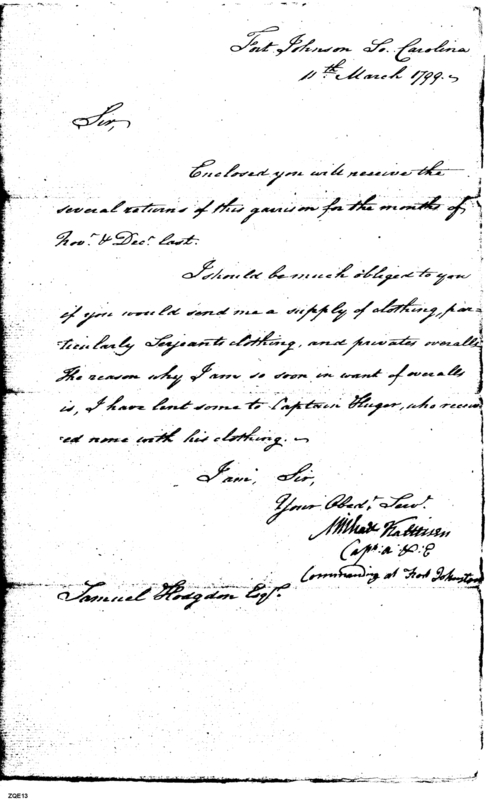 Fort Johnson So. Carolina
11th March 1799.
Sir,
Enclosed you will receive the
several returns of this garrison for the months of
Novr. & Decr. last.
I should be much obliged to you
if you would send me a supply of clothing, par=
ticularly Serjeants clothing, and privates overalls
The reason why I am so soon in want of overalls
is, I have lent some to Captain Huger, who receiv
ed none with his clothing.
I am, Sir,
Your Obedt. Servt.
Michael Kalteisen
Capt. A & E
Commanding at Fort Johnston
Samuel Hodgdon Esqr.
ZQE13